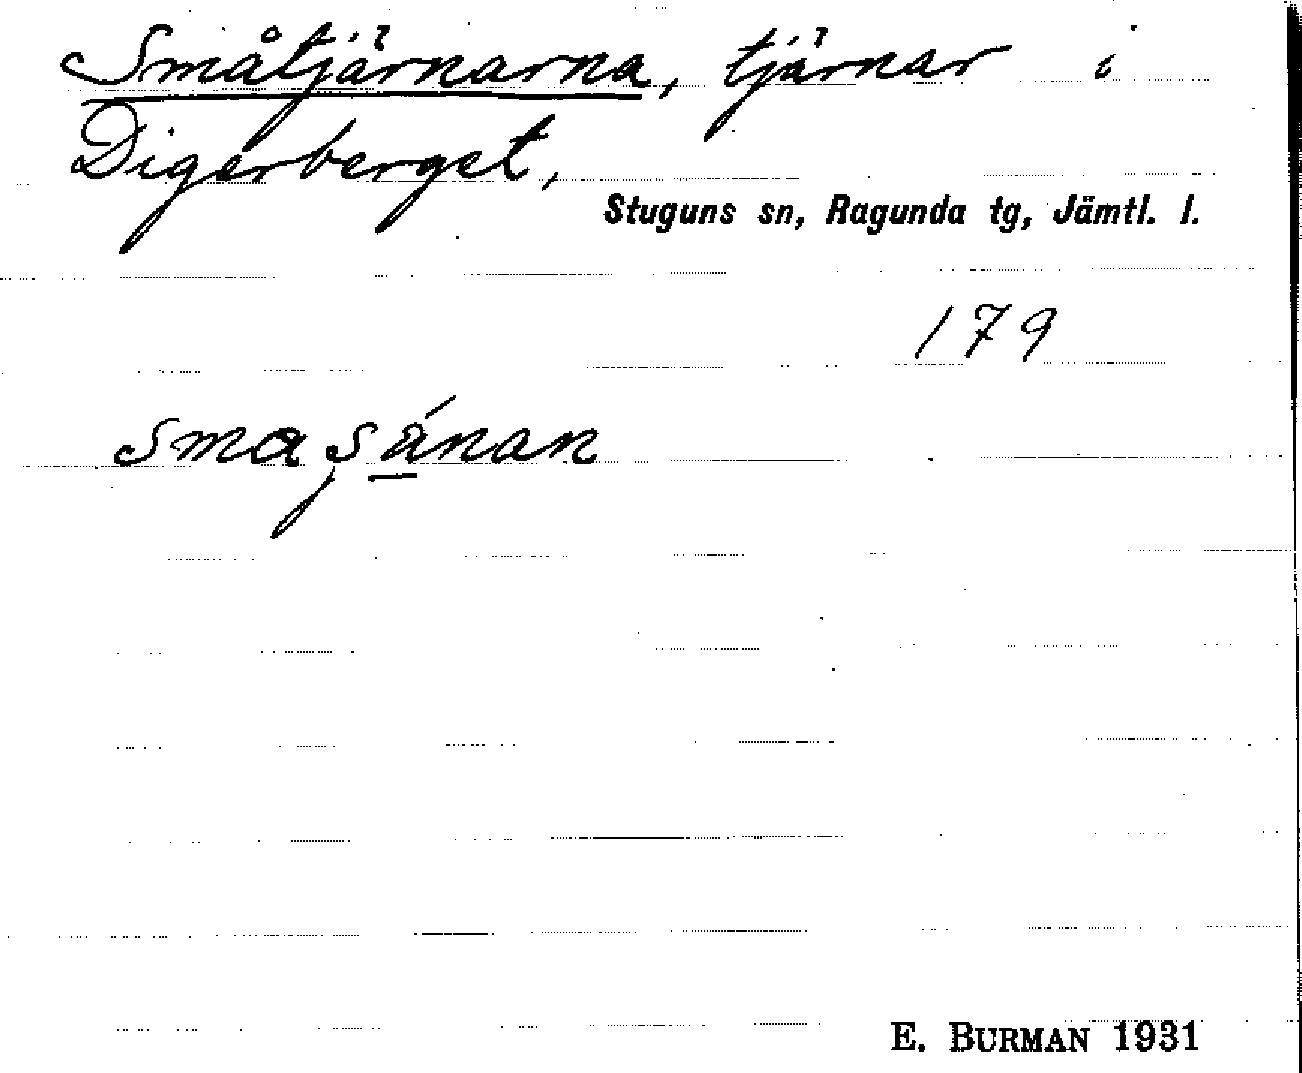 Småtjärnarna, tjärnar i
Digerberget,
Stuguns sn, Ragunda tg, Jämtl. l.
179
E. BURMAN 1931